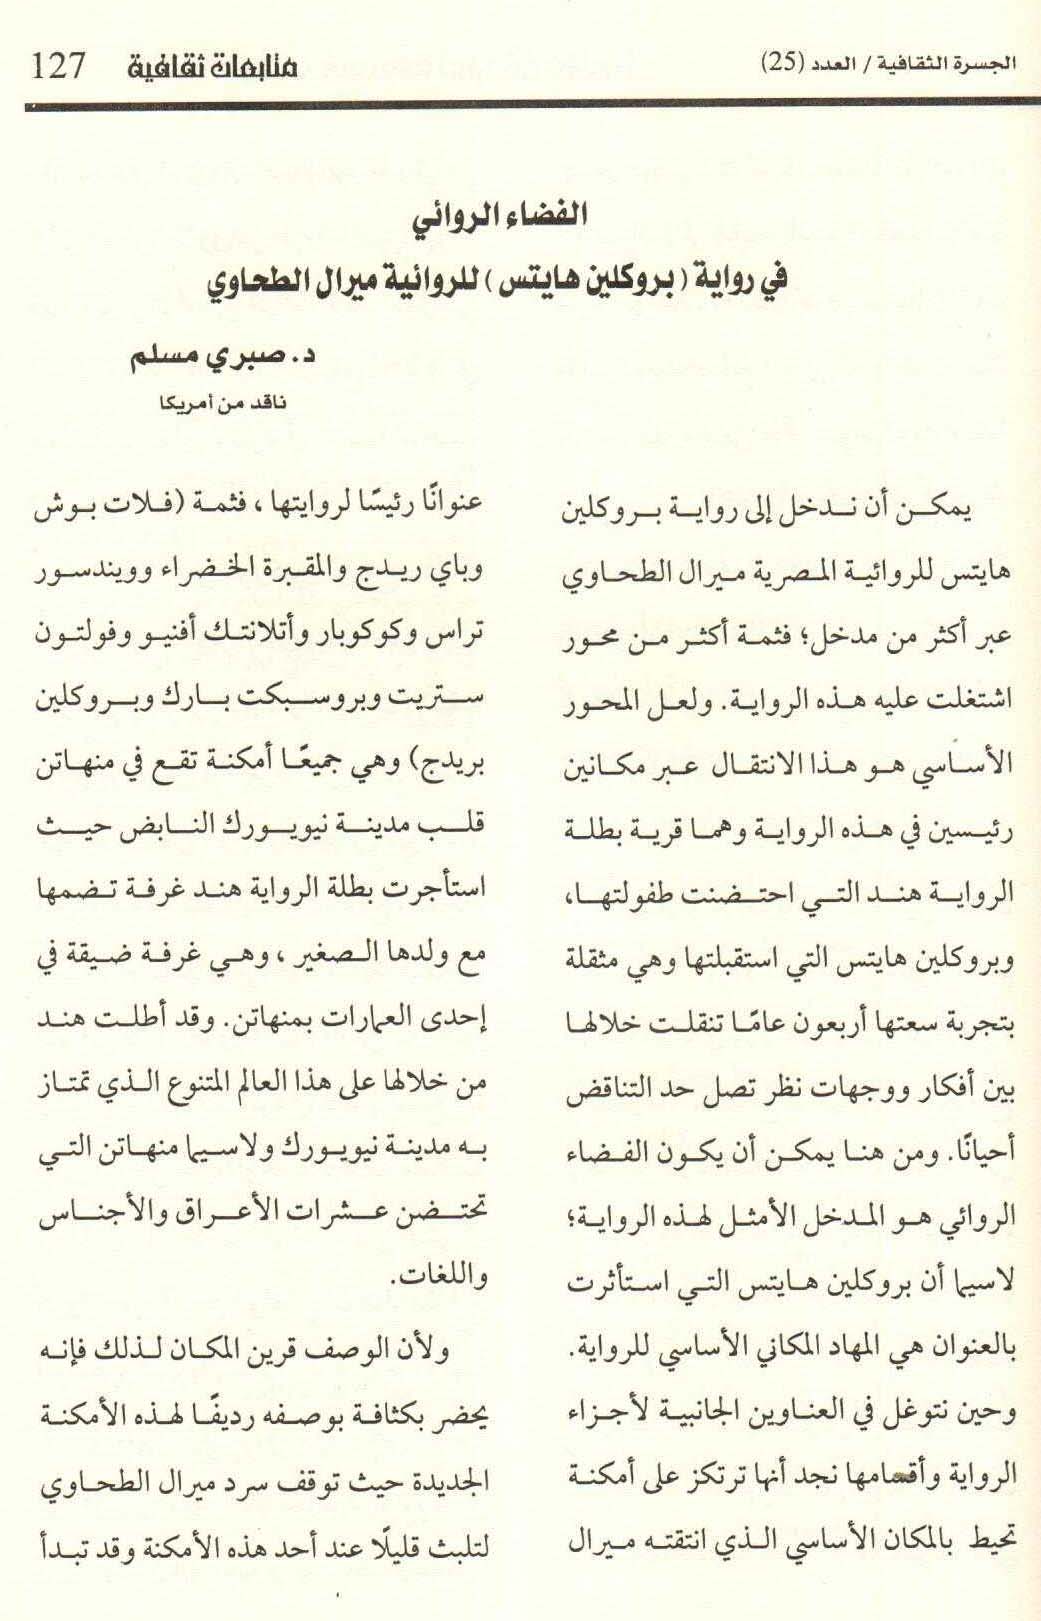 الجسرة الثقافية / العدد (25)
متابعات ثقافية 127
الفضاء الروائي
في رواية (بروكلين هايتس) للروائية ميرال الطحاوي
د. صبري مسلم
ناقد من أمريكا
يمكن أن ندخل إلى رواية بروكلين
هايتس للروائية المصرية ميرال الطحاوي
عبر أكثر من مدخل؛ فثمة أكثر من محور
اشتغلت عليه هذه الرواية. ولعل المحور
الأساسي هو هذا الانتقال عبر مكانين
رئيسين في هذه الرواية وهما قرية بطلة
الرواية هند التي احتضنت طفولتها،
وبروكلين هايتس التي استقبلتها وهي مثقلة
بتجربة سعتها أربعون عامًا تنقلت خلالها
بين أفكار ووجهات نظر تصل حد التناقض
أحيانًا. ومن هنا يمكن أن يكون الفضاء
الروائي هو المدخل الأمثل لهذه الرواية؛
لاسيما أن بروكلين هايتس التي استأثرت
بالعنوان هي المهاد المكاني الأساسي للرواية.
وحين نتوغل في العناوين الجانبية لأجزاء
الرواية وأقسامها نجد أنها ترتكز على أمكنة
تحيط بالمكان الأساسي الذي انتقته ميرال
عنوانًا رئيسًا لروايتها، فثمة (فلات بوش
وباي ريدج والمقبرة الخضراء وويندسور
تراس وكوكوبار وأتلانتك أفنيو وفولتون
ستريت وبروسبكت بارك وبروكلين
بريدج) وهي جميعًا أمكنة تقع في منهاتن
قلب مدينة نيويورك النابض حيث
استأجرت بطلة الرواية هند غرفة تضمها
مع ولدها الصغير، وهي غرفة ضيقة في
إحدى العمارات بمنهاتن. وقد أطلت هند
من خلالها على هذا العالم المتنوع الذي تمتاز
به مدينة نيويورك ولاسيما منهاتن التي
تحتضن عشرات الأعراق والأجناس
واللغات.
ولأن الوصف قرين المكان لذلك فإنه
يحضر بكثافة بوصفه رديفًا لهذه الأمكنة
الجديدة حيث توقف سرد ميرال الطحاوي
لتلبث قليلًا عند أحد هذه الأمكنة وقد تبدأ